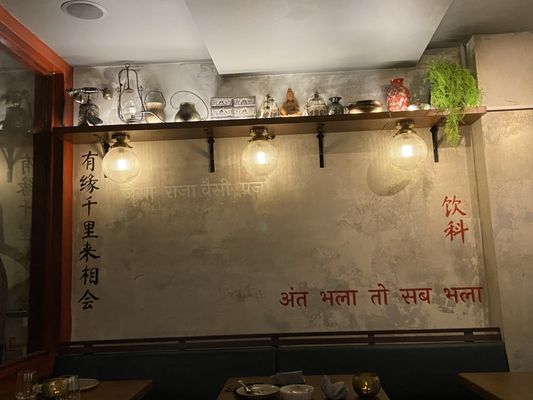 有缘千里来相会
राजा वैसी प्रजा
饮科
अंत भला तो सब भला